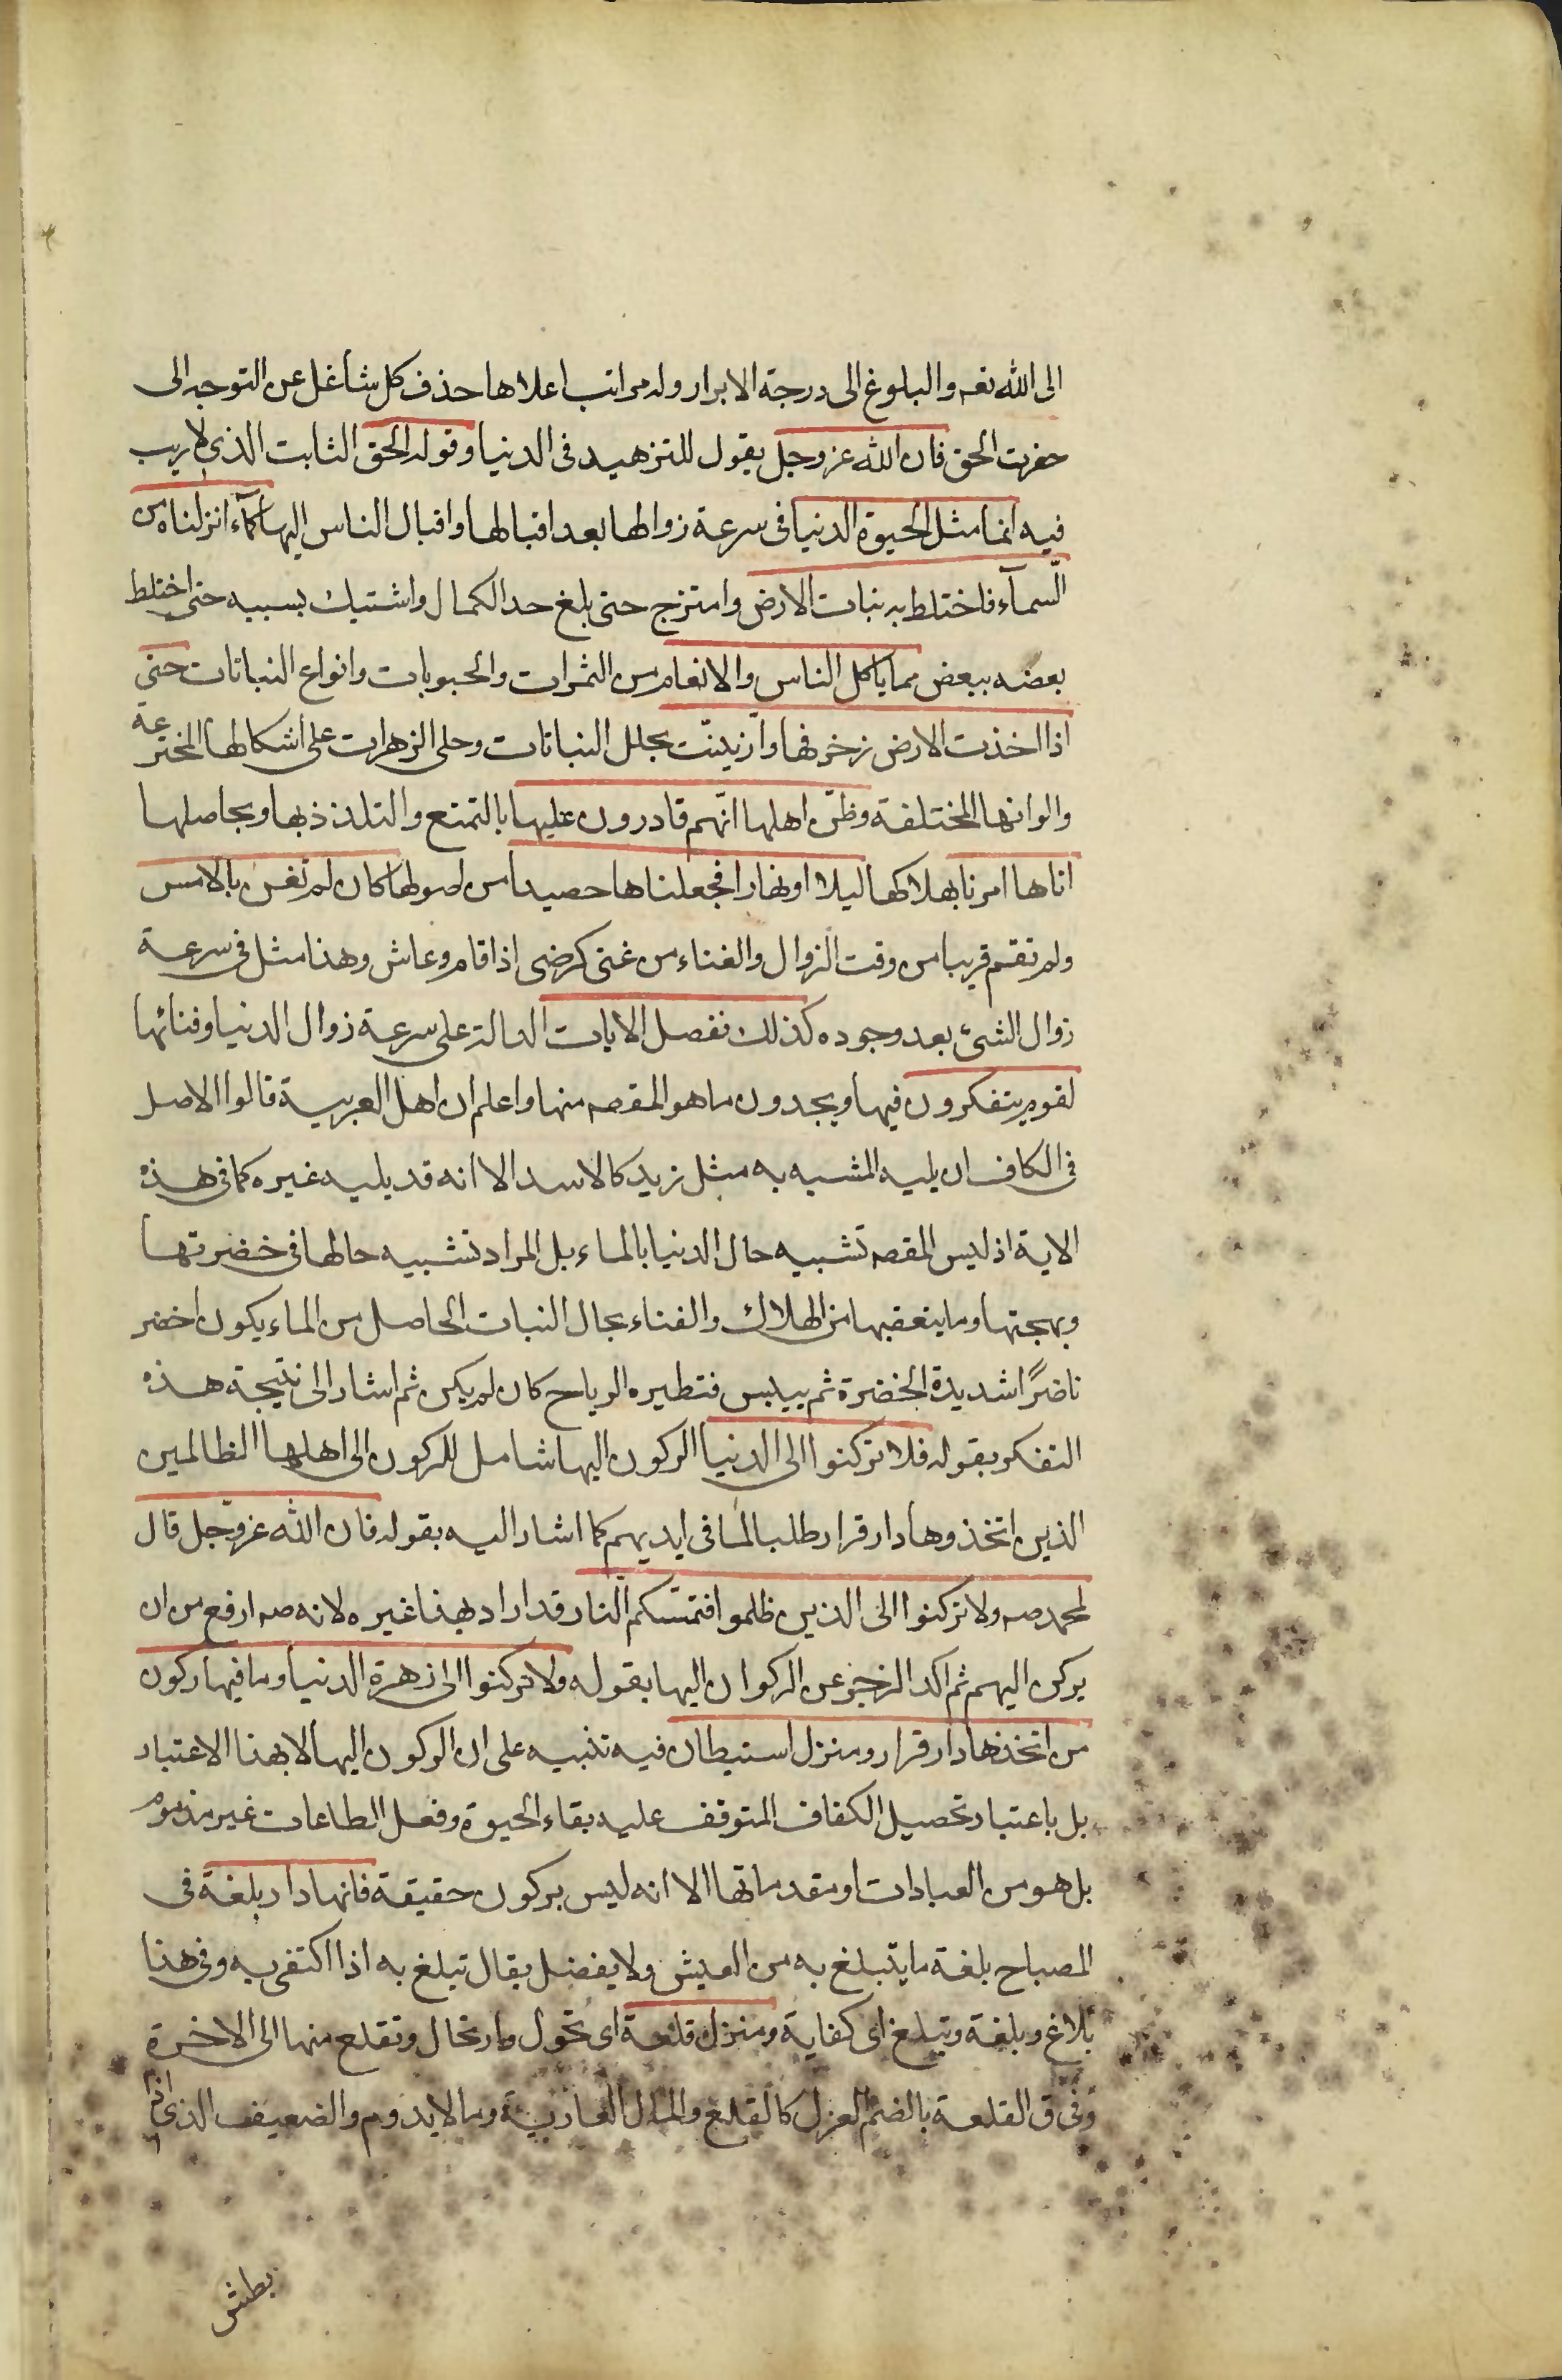 الى الله تعه والبلوغ الى درجة الابرار وله مراتب اعلاها حذف كل شاغل عن التوجه الى
حضرت الحق فان الله عز وجل يقول للتزهيد فى الدنيا وقوله الحق الثابت الذى لا ريب
فيه انما مثل الحيوة الدنيا فى سرعة زوالها بعد اقبالها واقبال الناس اليها كمآء انزلناه من
السمآء فاختلط به نبات الارض وامتزج حتى بلغ حد الكمال واشتبك بسببه حتى اختلط
بعضه ببعض مما ياكل الناس والانعام من الثمرات والحبوبات وانواع النباتات حتى
اذا اخذت الارض زخرفها وازينت بحلل النباتات وحلى الزهرات على اشكالها المخترعة
والوانها المختلفة وظن اهلها انهم قادرون عليها بالتمتع والتلذذ بها وبحاصلها
اتاها امرنا بهلاكها ليلا او نهارا فجعلناها حصيدا من اصولها كان لم تغن بالامس
ولم تقم قريبا من وقت الزوال والفناء من غنى كرضى اذا اقام وعاش وهذا مثل فى سرعة
زوال الشئ بعد وجوده كذلك نفصل الايات الدالة على سرعة زوال الدنيا وفنائها
لقوم يتفكرون فيها ويجدون ما هو المقصه منها واعلم ان اهل العربية قالوا الاصل
فى الكاف ان يليه المشبه به مثل زيد كالاسد الا انه قد يليه غيره كما فى هذه
الاية اذ ليس المقصه تشبيه حال الدنيا بالماء بل المراد تشبيه حالها فى خضرتها
وبهجتها وما يتعقبها من الهلاك والفناء بحال النبات الحاصل من الماء يكون اخضر
ناضرًا شديدة الخضرة ثم ييبس فتطيره الرياح كان لم يكن ثم اشار الى نتيجة هذه
التفكر بقوله فلا تركنوا الى الدنيا الركون اليها شامل للركون الى اهلها الظالمين
الذين اتخذوها دار قرار طلبا لما فى ايديهم كما اشار اليه بقوله فان الله عز وجل قال
لمحمد صه ولا تركنوا الى الذين ظلموا فتمسكم النار قد اراد بهذا غيره لانه صه ارفع من ان
يركن اليهم ثم اكد الزجر عن الركوان اليها بقوله ولا تركنوا الى زهرة الدنيا وما فيها ركون
من اتخذها دار قرار ومنزل استيطان فيه تنبيه على ان الركون اليها لا بهذا الاعتبار
بل باعتبار تحصيل الكفاف المتوقف عليه بقاء الحيوة وفعل الطاعات غير مذموم
بل هو من العبادات او مقدماتها الا انه ليس بركون حقيقة فانها دار بلغة فى
المصباح بلغة ما يتبلغ به من العيش ولا يفضل يقال تبلغ به اذا اكتفى به وفى هذا
بلاغ وبلغة وتبلغ اى كفاية ومنزل قلعة اى تحول وارتحال وتقلع منها الى الاخرة
وفى ق القلعة بالضم العزل كالقلع والمال العارية وما لا يدوم والضعيف الذى اذا
بطش